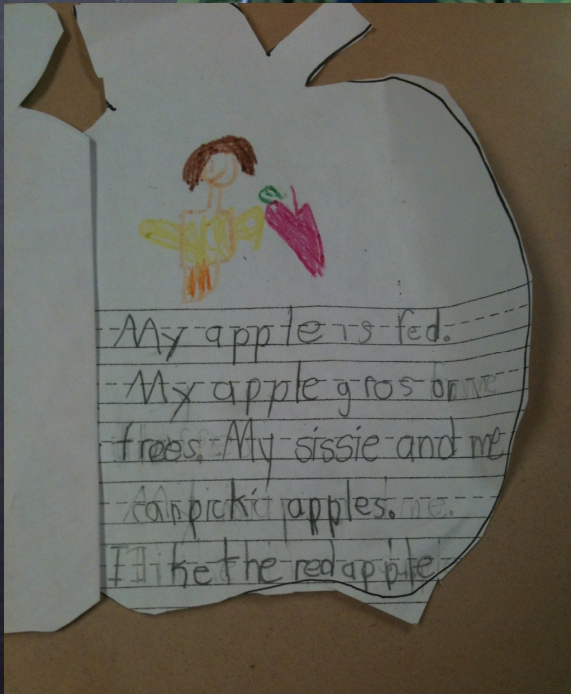 My apple is red.
My apple gros on
trees. My sissie and me
can pick apples.
I like the red apple